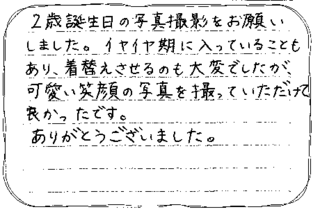 2歳誕生日の写真撮影をお願い
しました。イヤイヤ期に入っていることも
あり、着替えさせるのも大変でしたが、
可愛い笑顔の写真を撮っていただけて
良かったです。
ありがとうございました。